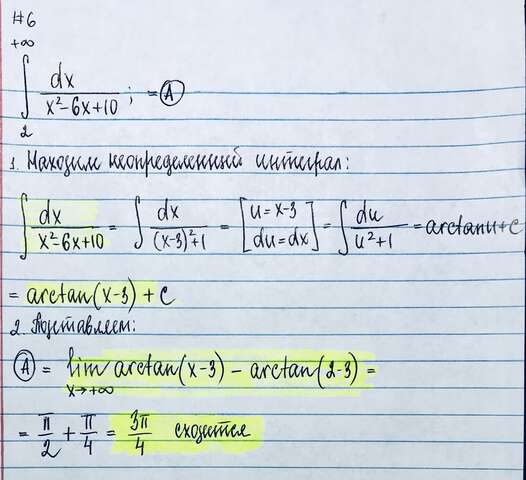 #6
+∞
∫ dx / (x²-6x+10) ; = Ⓐ
2
1. Находим неопределенный интеграл:
∫ dx / (x²-6x+10) = ∫ dx / ((x-3)²+1) = [u=x-3 du=dx] = ∫ du / (u²+1) = arctan u + c
= arctan(x-3) + c
2. Подставляем:
Ⓐ = lim x→+∞ arctan(x-3) - arctan(2-3) =
= π/2 + π/4 = 3π/4 сходится